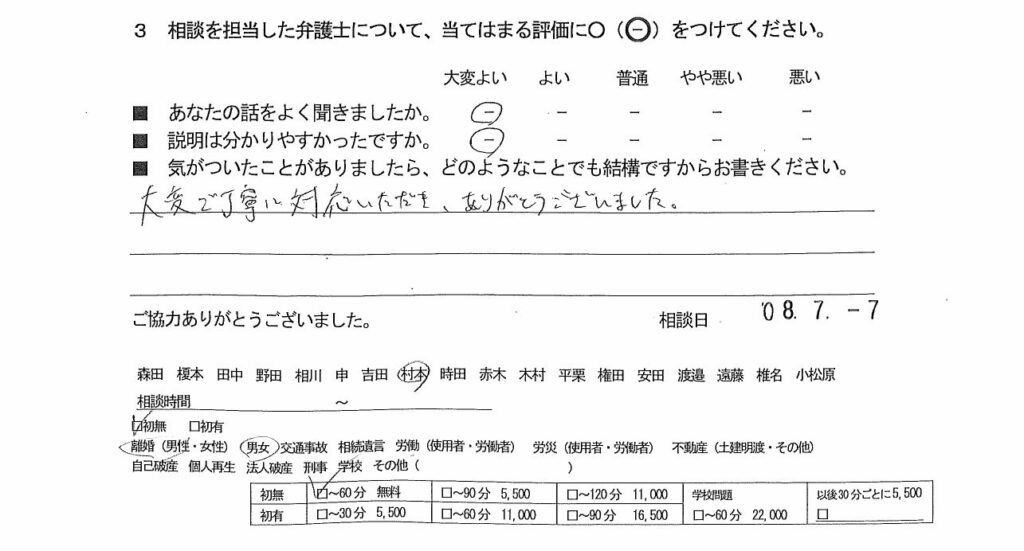 3 相談を担当した弁護士について、当てはまる評価に○(㊀)をつけてください。
大変よい よい 普通 やや悪い 悪い
■ あなたの話をよく聞きましたか。 － － － － －
■ 説明は分かりやすかったですか。 － － － － －
■ 気がついたことがありましたら、どのようなことでも結構ですからお書きください。
大変ご丁寧に対応いただき、ありがとうございました。
ご協力ありがとうございました。 相談日 '08. 7. -7
森田 榎本 田中 野田 相川 申 吉田 村本 時田 赤木 木村 平栗 権田 安田 渡邉 遠藤 椎名 小松原
相談時間 ～
□初無 □初有
離婚(男性・女性) 男女 交通事故 相続遺言 労働(使用者・労働者) 労災(使用者・労働者) 不動産(土建明渡・その他)
自己破産 個人再生 法人破産 刑事 学校 その他( )
初無 □～60分 無料 □～90分 5,500 □～120分 11,000 学校問題 以後30分ごとに5,500
初有 □～30分 5,500 □～60分 11,000 □～90分 16,500 □～60分 22,000 □